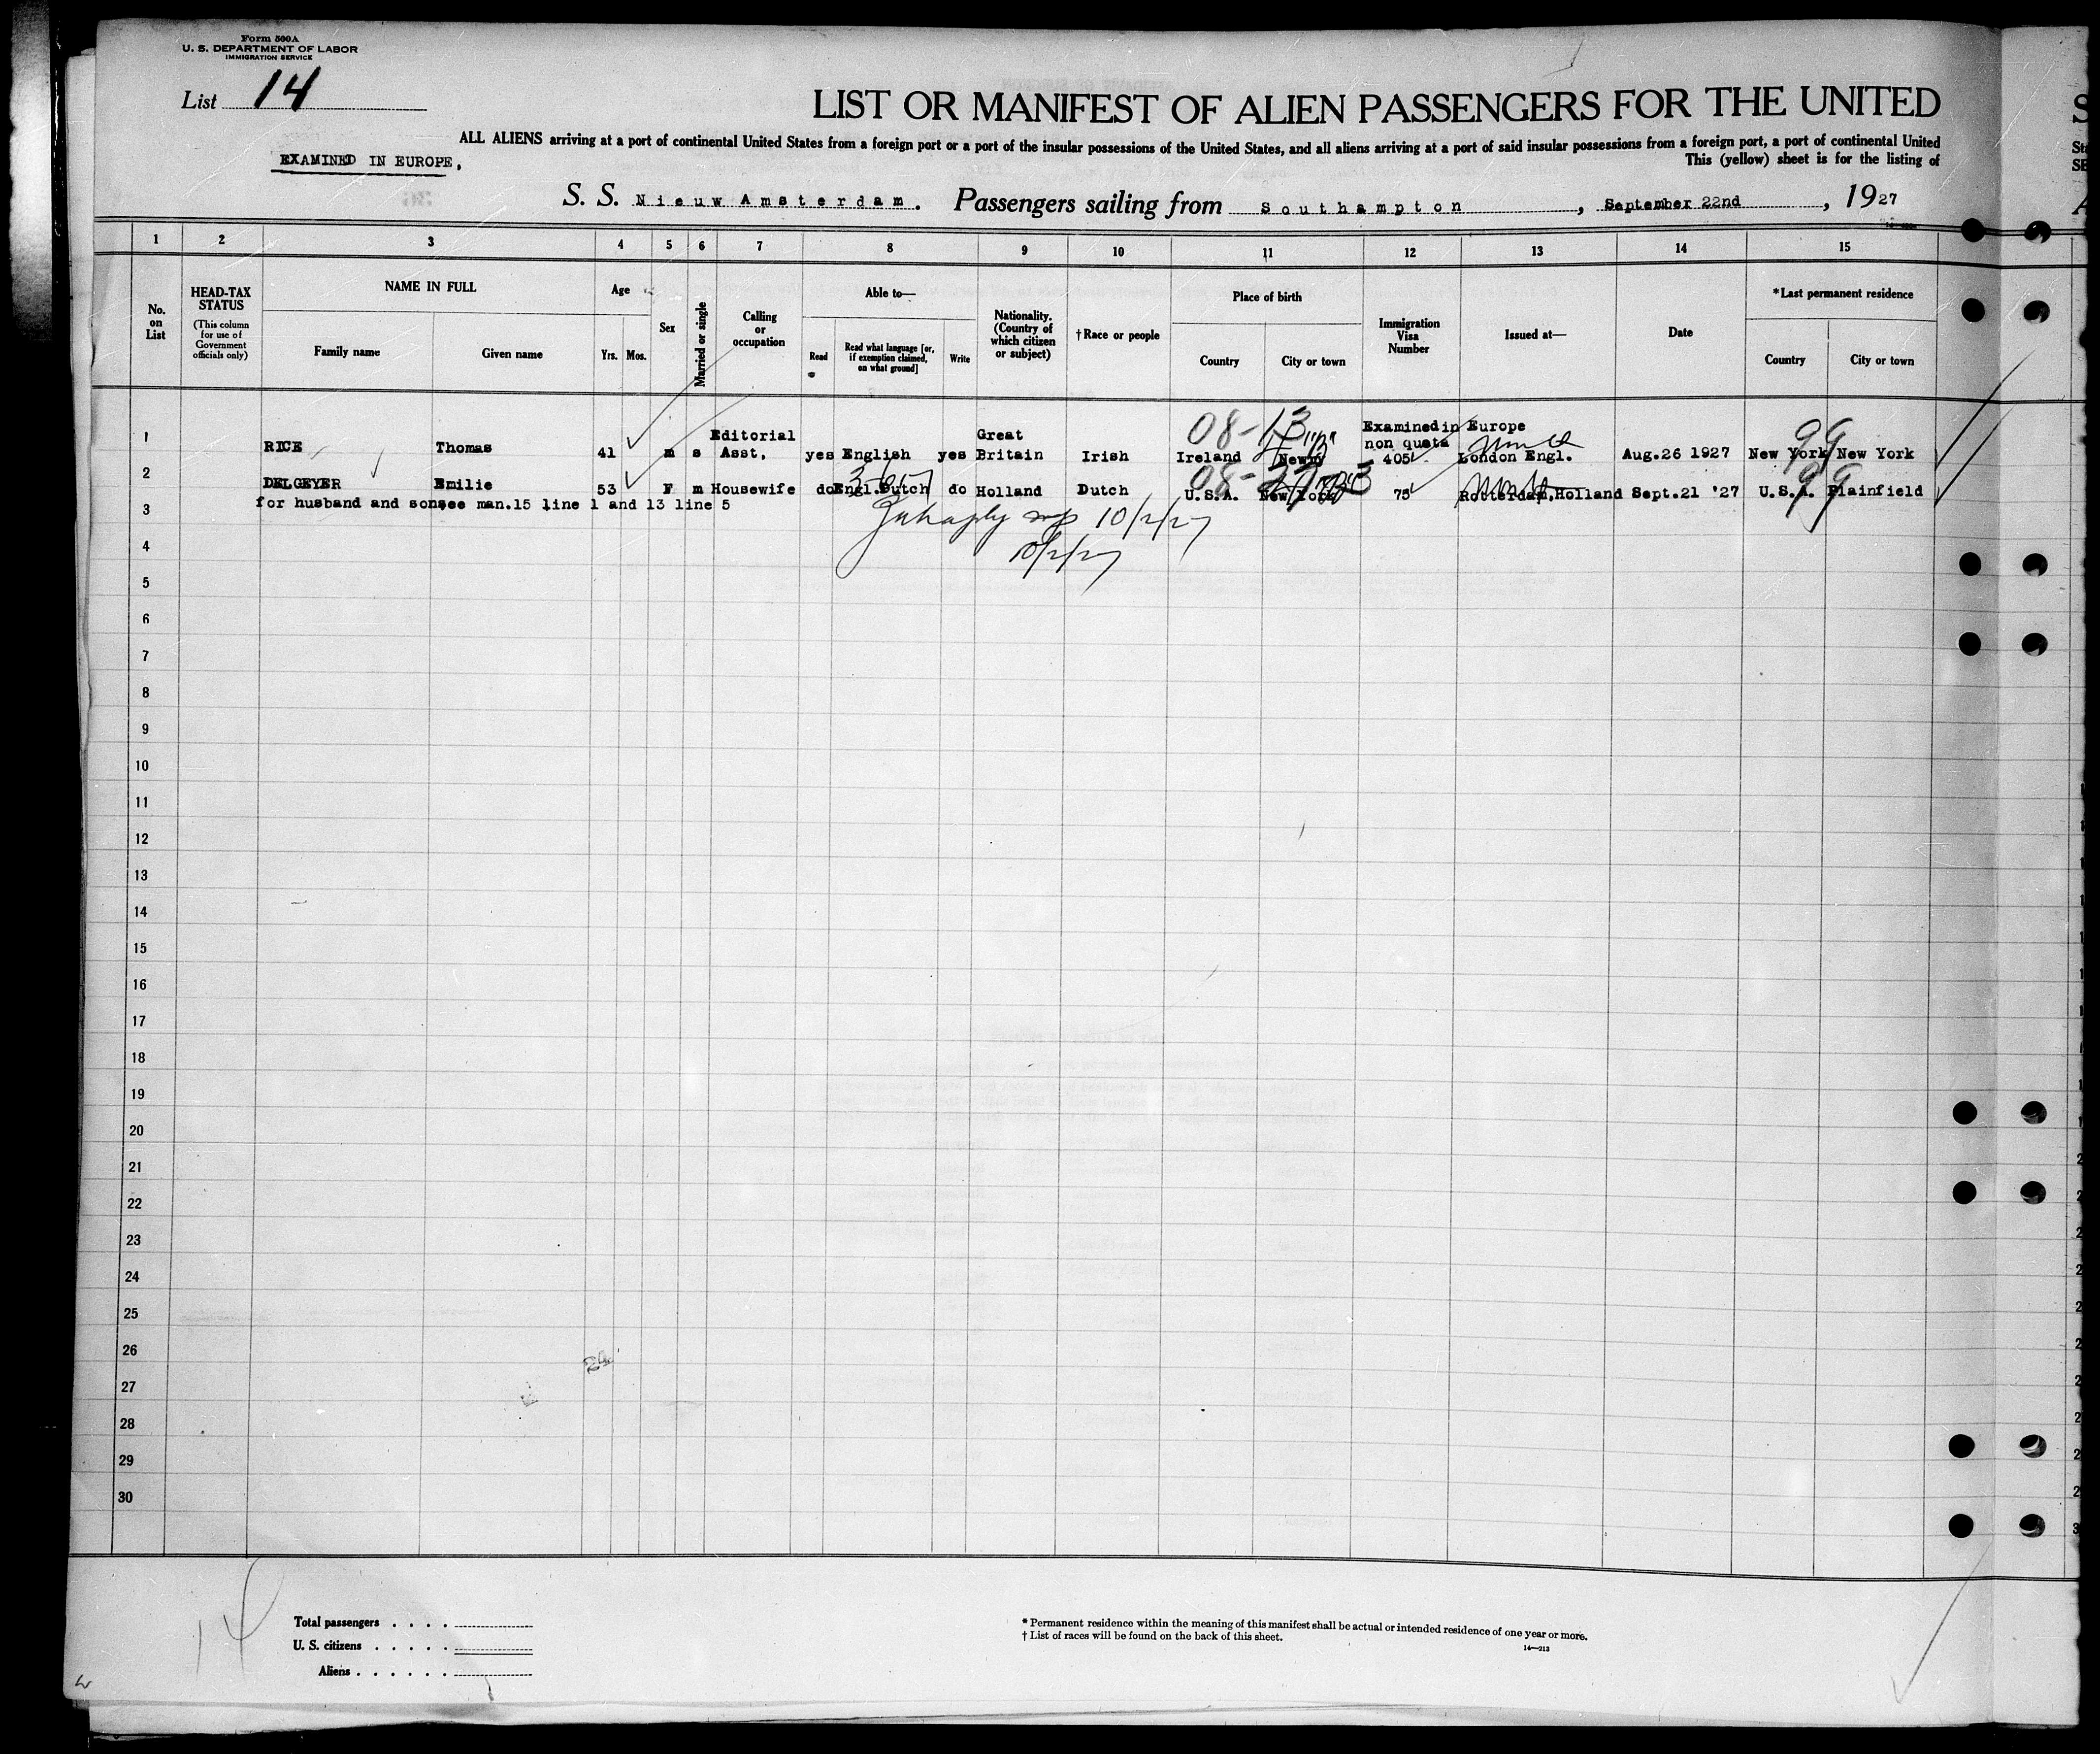 Form 500A
U. S. DEPARTMENT OF LABOR
IMMIGRATION SERVICE
List 14
LIST OR MANIFEST OF ALIEN PASSENGERS FOR THE UNITED
ALL ALIENS arriving at a port of continental United States from a foreign port or a port of the insular possessions of the United States, and all aliens arriving at a port of said insular possessions from a foreign port, a port of continental United
This (yellow) sheet is for the listing of
EXAMINED IN EUROPE,
S. S. Nieuw Amsterdam. Passengers sailing from Southampton, September 22nd, 1927
1 2 3 4 5 6 7 8 9 10 11 12 13 14 15
No. on List
HEAD-TAX STATUS
(This column for use of Government officials only)
NAME IN FULL
Family name Given name
Age
Yrs. Mos.
Sex
Married or single
Calling or occupation
Able to—
Read Read what language [or, if exemption claimed, on what ground] Write
Nationality. (Country of which citizen or subject)
†Race or people
Place of birth
Country City or town
Immigration Visa Number
Issued at—
Date
*Last permanent residence
Country City or town
08-13
99
1 RICE Thomas 41 m s Editorial Asst. yes English yes Great Britain Irish Ireland Examined in Europe non quota 405 London Engl. Aug.26 1927 New York New York
2 DELGEYER Emilie 53 F m Housewife do Engl.Dutch do Holland Dutch U.S.A. New York 75 Rotterdam,Holland Sept.21 '27 U.S.A. Plainfield
99
for husband and son see man.15 line 1 and 13 line 5
3
10/2/27
4
10/2/27
5
6
7
8
9
10
11
12
13
14
15
16
17
18
19
20
21
22
23
24
25
26
27
28
29
30
14
Total passengers . . . .
U. S. citizens . . . . .
Aliens . . . . . .
* Permanent residence within the meaning of this manifest shall be actual or intended residence of one year or more.
† List of races will be found on the back of this sheet.
14—213